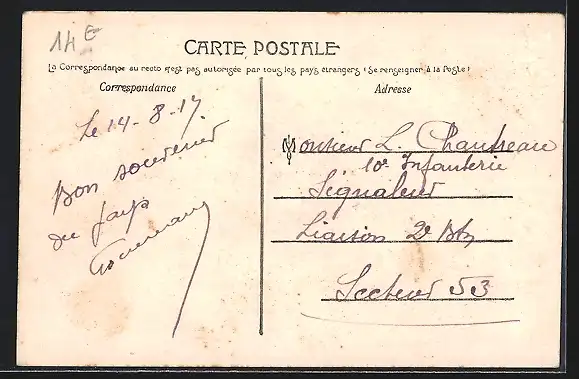 14 E
CARTE POSTALE
La Correspondance au recto n'est pas autorisée par tous les pays étrangers (Se renseigner à la Poste)
Correspondance
Adresse
Le 14-8-17
Bon souvenir
du pays
Monsieur L. Chautreau
10e Infanterie
Signaleur
Liaison 2e Btn
Secteur 53